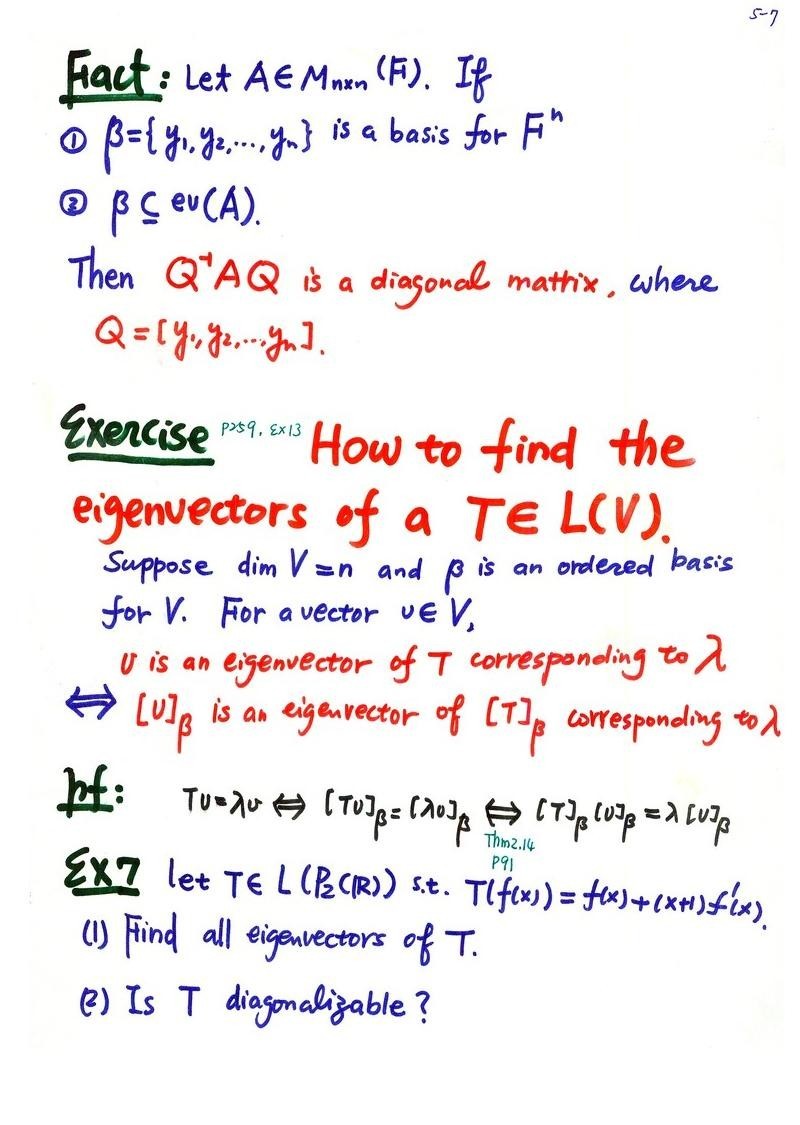 5-7
Fact: Let A∈Mn×n(F). If
① β={y1,y2,...,yn} is a basis for Fⁿ
② β⊆ev(A).
Then Q⁻¹AQ is a diagonal matrix, where
Q=[y1,y2,...,yn].
Exercise P259, Ex13 How to find the
eigenvectors of a T∈L(V).
Suppose dim V=n and β is an ordered basis
for V. For a vector υ∈V,
υ is an eigenvector of T corresponding to λ
⇔ [υ]β is an eigenvector of [T]β corresponding to λ
pf: Tυ=λυ ⇔ [Tυ]β=[λυ]β ⇔ [T]β[υ]β=λ[υ]β
Thm2.14
P91
EX7 let T∈L(P2(R)) s.t. T(f(x))=f(x)+(x+1)f'(x).
(1) Find all eigenvectors of T.
(2) Is T diagonalizable?